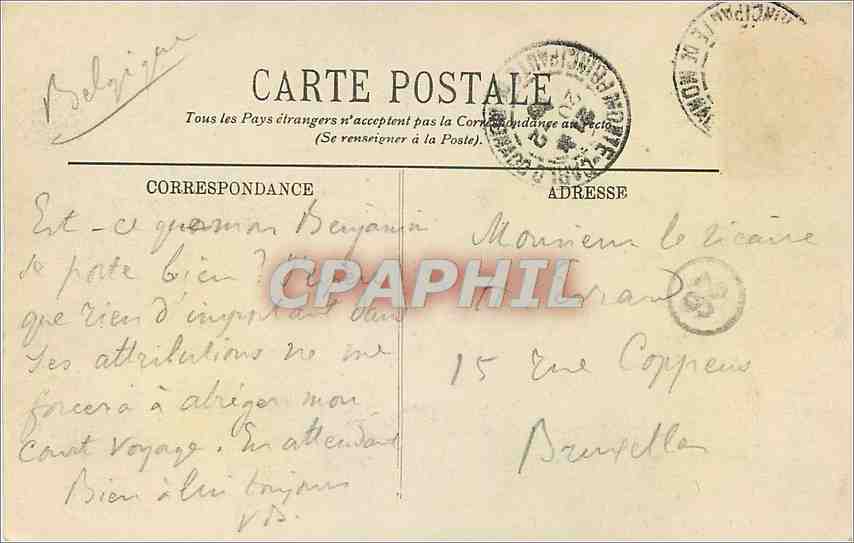 Belgique
CARTE POSTALE
Tous les Pays étrangers n'acceptent pas la Correspondance au recto
(Se renseigner à la Poste).
CORRESPONDANCE
Est-ce que mon Benjamin
se porte bien ? J'espère
que rien d'important dans
ses attributions ne me
forcera à abréger mon
court voyage. En attendant
Bien à lui toujours
VB.
ADRESSE
Monsieur le vicaire
15 rue Coppens
Bruxelles
MONTE-CARLO
PRINCIPAUTÉ DE MONACO
CPAPHIL